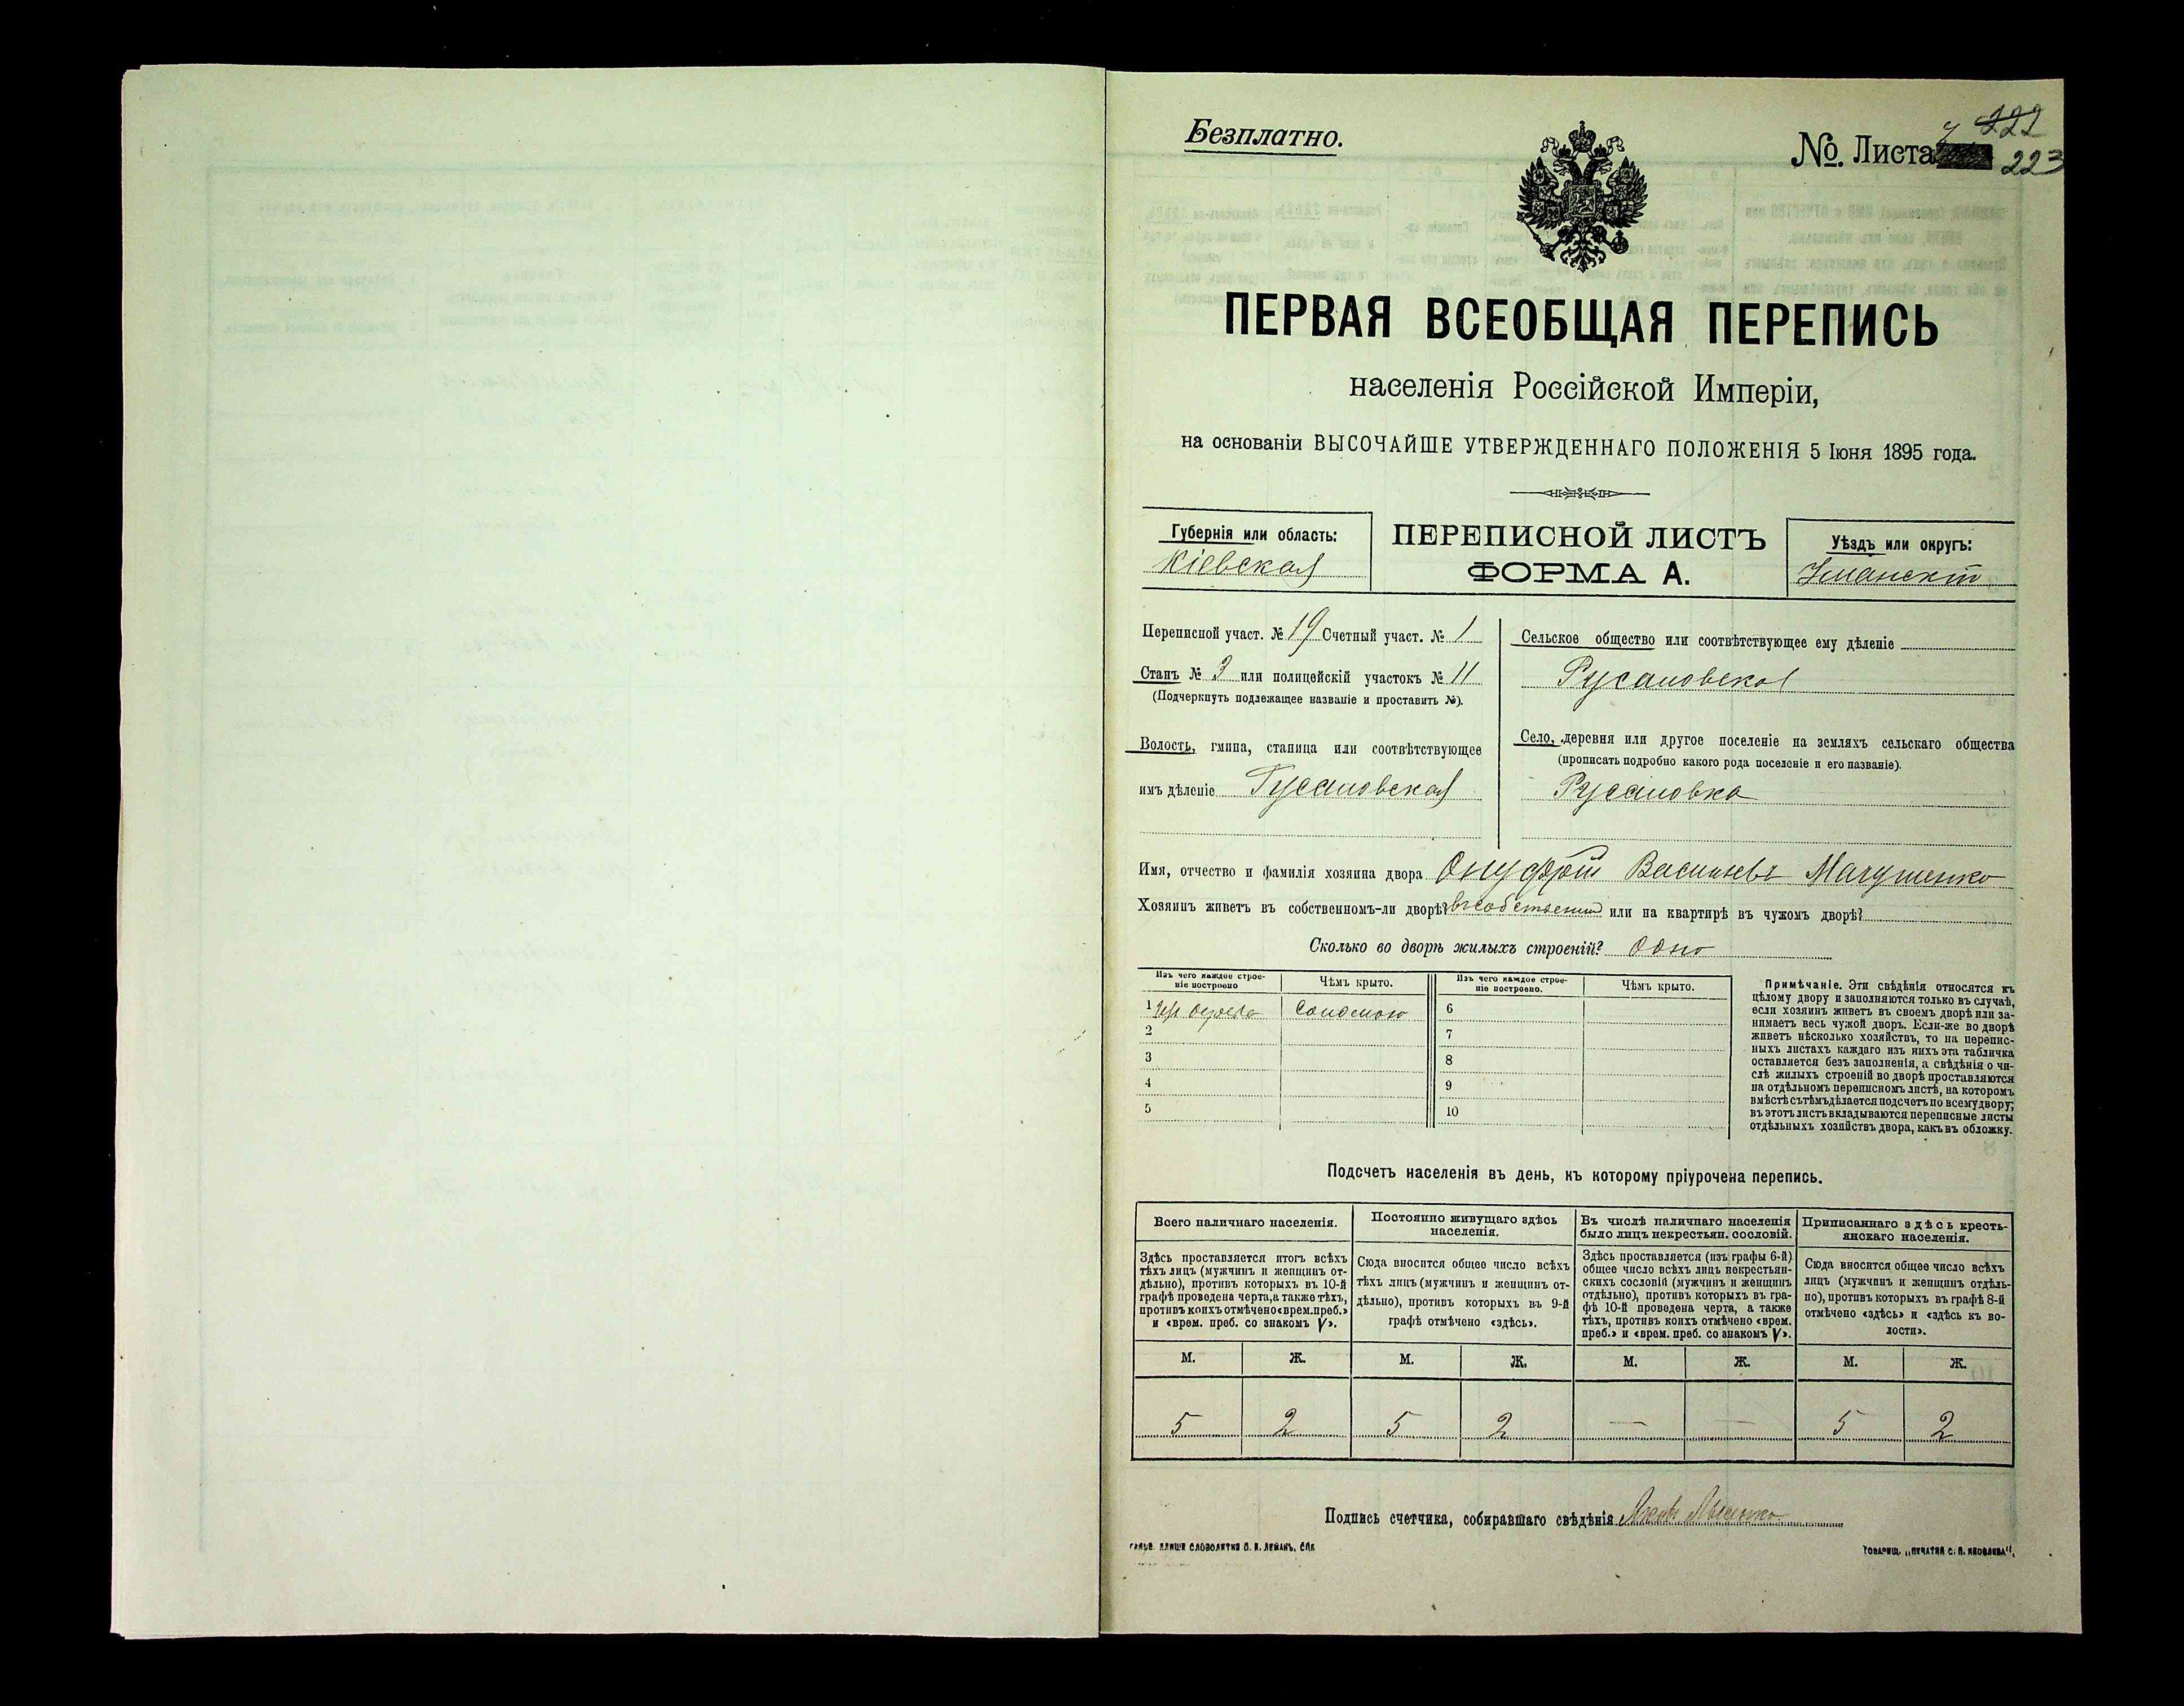 Безплатно.
222
№. Листа 7 223
ПЕРВАЯ ВСЕОБЩАЯ ПЕРЕПИСЬ
населенія Россійской Имперіи,
на основаніи ВЫСОЧАЙШЕ УТВЕРЖДЕННАГО ПОЛОЖЕНІЯ 5 Іюня 1895 года.
Губернія или область:
Кіевская
ПЕРЕПИСНОЙ ЛИСТЪ
ФОРМА А.
Уѣздъ или округъ:
Уманскій
Переписной участ. № 19 Счетный участ. № 1
Станъ № 3 или полицейскій участокъ № 11
(Подчеркнуть подлежащее названіе и проставить №).
Волость, гмина, станица или соотвѣтствующее
имъ дѣленіе Русаловская
Сельское общество или соотвѣтствующее ему дѣленіе
Русаловское
Село, деревня или другое поселеніе на земляхъ сельскаго общества
(прописать подробно какого рода поселеніе и его названіе).
Русаловка
Имя, отчество и фамилія хозяина двора Онуфрій Васильевъ
Хозяинъ живетъ въ собственномъ-ли дворѣ? въ собственом или на квартирѣ въ чужомъ дворѣ?
Сколько во дворѣ жилыхъ строеній? Одно
Изъ чего каждое строе-
ніе построено
Чѣмъ крыто.
Изъ чего каждое строе-
ніе построено.
Чѣмъ крыто.
1 изъ дерева Соломою 6
2 7
3 8
4 9
5 10
Примѣчаніе. Эти свѣдѣнія относятся къ
цѣлому двору и заполняются только въ случаѣ,
если хозяинъ живетъ въ своемъ дворѣ или за-
нимаетъ весь чужой дворъ. Если-же во дворѣ
живетъ нѣсколько хозяйствъ, то на перепис-
ныхъ листахъ каждаго изъ нихъ эта табличка
оставляется безъ заполненія, а свѣдѣнія о чи-
слѣ жилыхъ строеній во дворѣ проставляются
на отдѣльномъ переписномъ листѣ, на которомъ
вмѣстѣ съ тѣмъ дѣлается подсчетъ по всему двору;
въ этотъ листъ вкладываются переписные листы
отдѣльныхъ хозяйствъ двора, какъ въ обложку.
Подсчетъ населенія въ день, къ которому пріурочена перепись.
Всего наличнаго населенія.
Здѣсь проставляется итогъ всѣхъ
тѣхъ лицъ (мужчинъ и женщинъ от-
дѣльно), противъ которыхъ въ 10-й
графѣ проведена черта, а также тѣхъ,
противъ коихъ отмѣчено «врем. преб.»
и «врем. преб. со знакомъ V».
Постоянно живущаго здѣсь
населенія.
Сюда вносится общее число всѣхъ
тѣхъ лицъ (мужчинъ и женщинъ от-
дѣльно), противъ которыхъ въ 9-й
графѣ отмѣчено «здѣсь».
Въ числѣ наличнаго населенія
было лицъ некрестьян. сословій.
Здѣсь проставляется (изъ графы 6-й)
общее число всѣхъ лицъ некрестьян-
скихъ сословій (мужчинъ и женщинъ
отдѣльно), противъ которыхъ въ гра-
фѣ 10-й проведена черта, а также
тѣхъ, противъ коихъ отмѣчено «врем.
преб.» и «врем. преб. со знакомъ V».
Приписаннаго здѣсь кресть-
янскаго населенія.
Сюда вносится общее число всѣхъ
лицъ (мужчинъ и женщинъ отдѣль-
но), противъ которыхъ въ графѣ 8-й
отмѣчено «здѣсь» и «здѣсь къ во-
лости».
М. Ж. М. Ж. М. Ж. М. Ж.
5 2 5 2 — — 5 2
Подпись счетчика, собиравшаго свѣдѣнія
ТОВАРИЩ. „ПЕЧАТНЯ С. П. ЯКОВЛЕВА“.